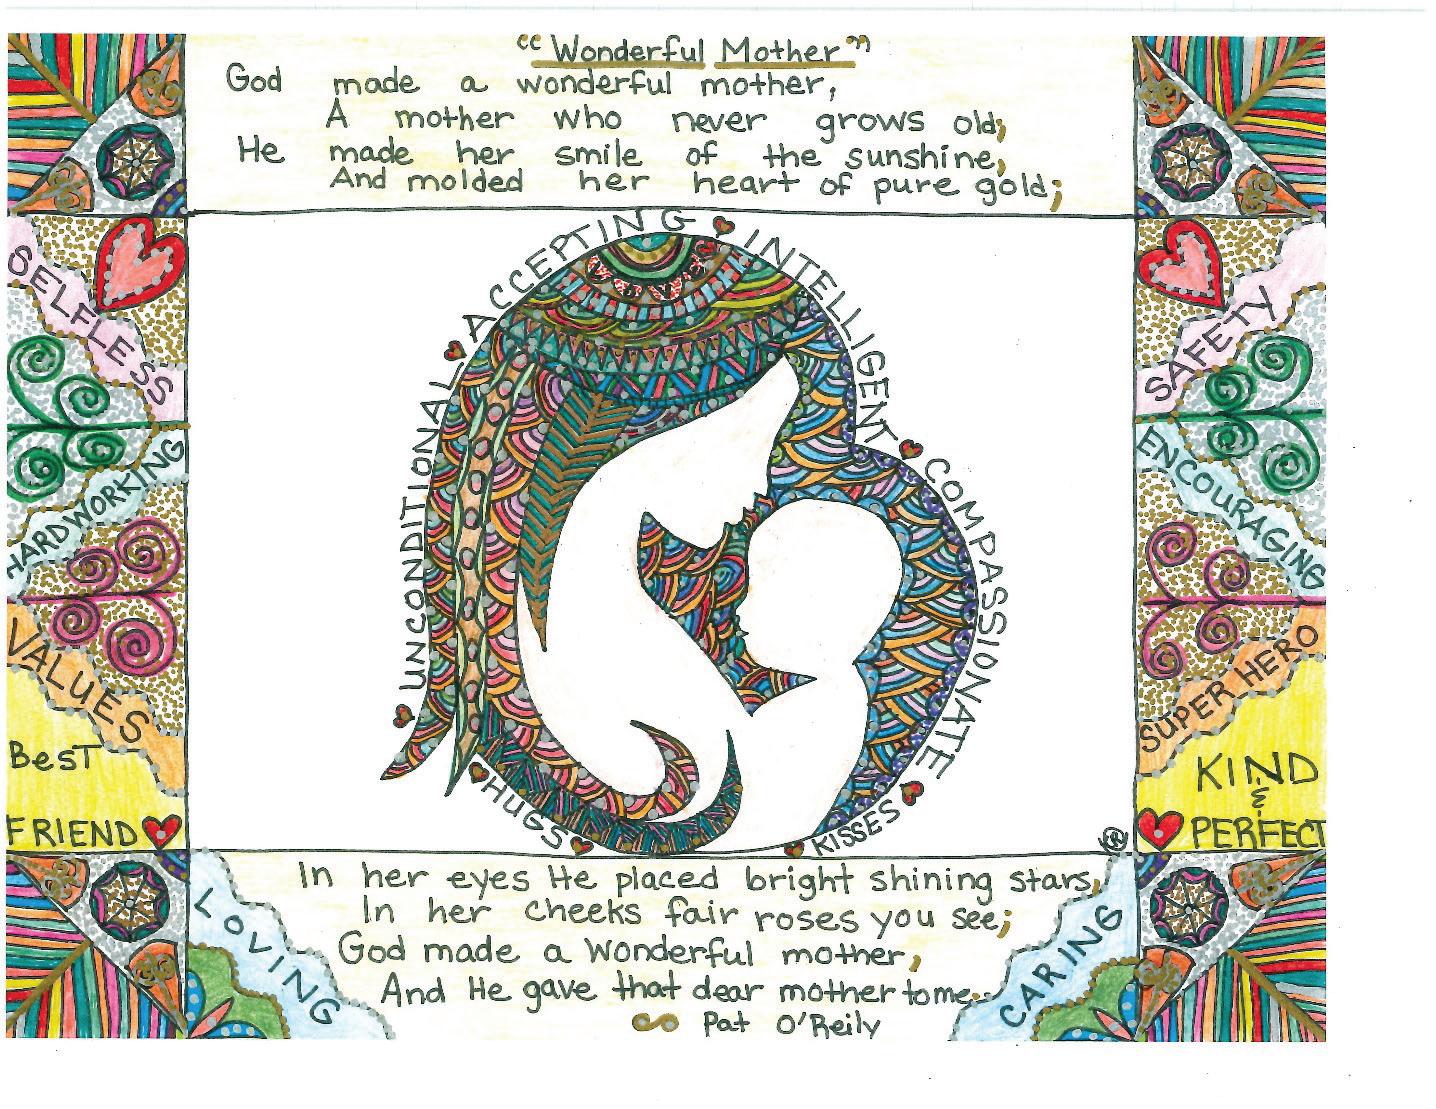 “Wonderful Mother”
God made a wonderful mother,
A mother who never grows old;
He made her smile of the sunshine,
And molded her heart of pure gold;
UNCONDITIONAL
ACCEPTING
INTELLIGENT
COMPASSIONATE
HUGS
KISSES
SELFLESS
HARDWORKING
VALUES
BEST
FRIEND
SAFETY
ENCOURAGING
SUPER HERO
KIND
&
PERFECT
LOVING
CARING
In her eyes He placed bright shining stars,
In her cheeks fair roses you see;
God made a wonderful mother,
And He gave that dear mother to me..
Pat O'Reily